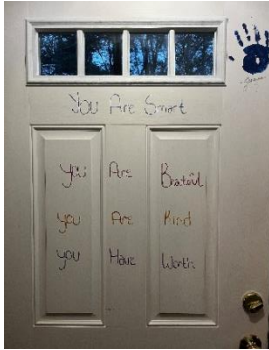 You Are Smart
You Are
You Are Kind
You Have Worth